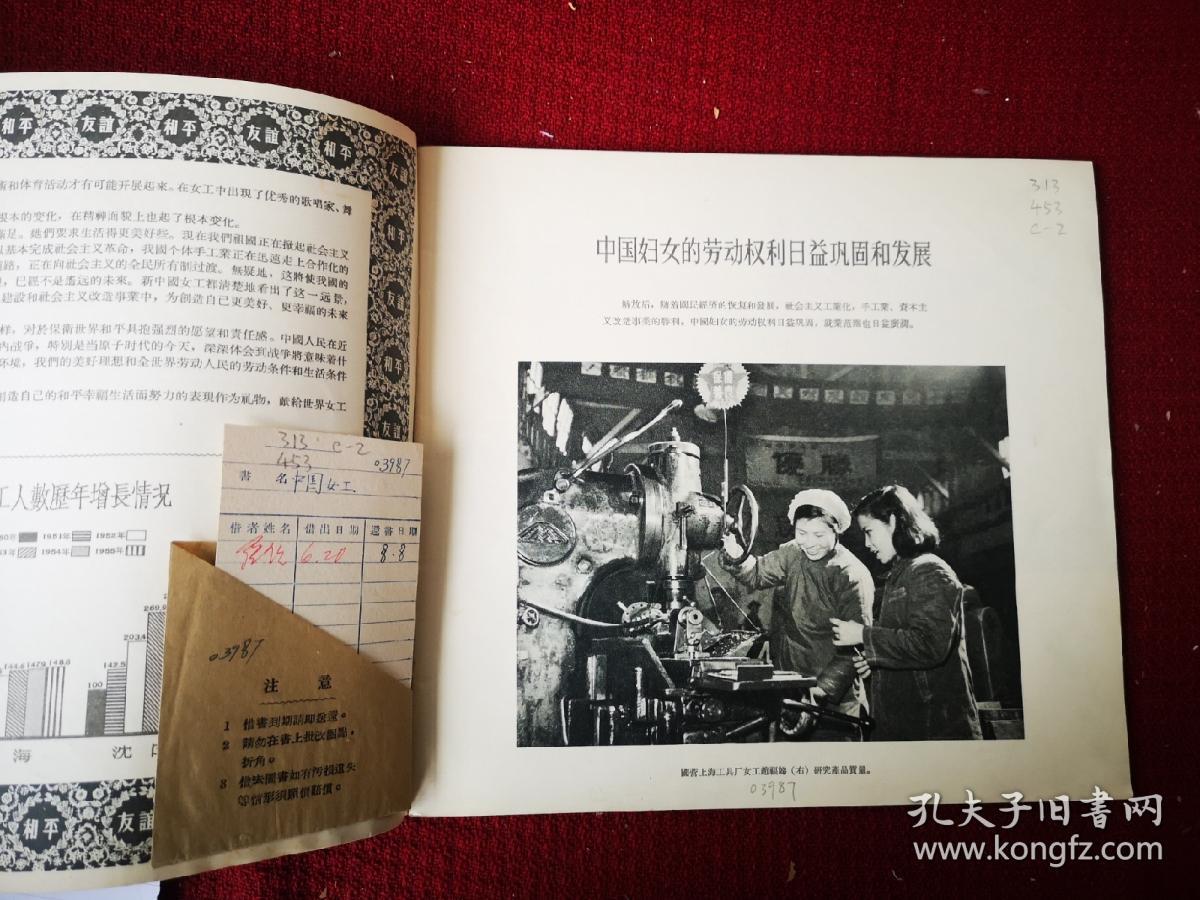 和平
友誼
和平
友誼
和平
友誼
和平
友誼
和平
友誼
術和体育活动才有可能开展起來。在女工中出現了优秀的歌唱家、舞
根本的变化，在精神面貌上也起了根本变化。
滿足。她們要求生活得更美好些。現在我們祖國正在掀起社会主义
以基本完成社会主义革命，我國个体手工業正在迅速走上合作化的
道路，正在向社会主义的全民所有制过渡。無疑地，这將使我國的
，已經不是遙远的未來。新中國女工都清楚地看出了这一远景，
建設和社会主义改造事業中，为創造自己更美好、更幸福的未來
样，对於保衛世界和平具抱强烈的愿望和責任感。中國人民在近
內战爭，特別是当原子时代的今天，深深体会到战爭將意味着什
环境，我們的美好理想和全世界劳动人民的劳动条件和生活条件
創造自己的和平幸福生活而努力的表現作为礼物，獻給世界女工
工人數歷年增長情况
1951年
1952年
1954年
1955年
144.6
147.9
148.8
100
142.5
203.4
海
沈
和平
友誼
313 C-2
453
03987
書名 中国女工
借者姓名 借出日期 還書日期
6.20 8.8
03987
注意
1 借書到期請即送還。
2 請勿在書上批改圈點，
折角。
3 借去圖書如有污損遺失
等情形須照價賠償。
313
453
C-2
中国妇女的劳动权利日益巩固和发展
解放后，隨着國民經濟的恢复和發展，社会主义工業化，手工業、資本主
义改造事業的勝利，中國妇女的劳动权利日益巩固，就業范圍也日益廣闊。
優勝
國营上海工具厂女工趙福錦（右）研究產品質量。
03987
孔夫子旧書网
www.kongfz.com